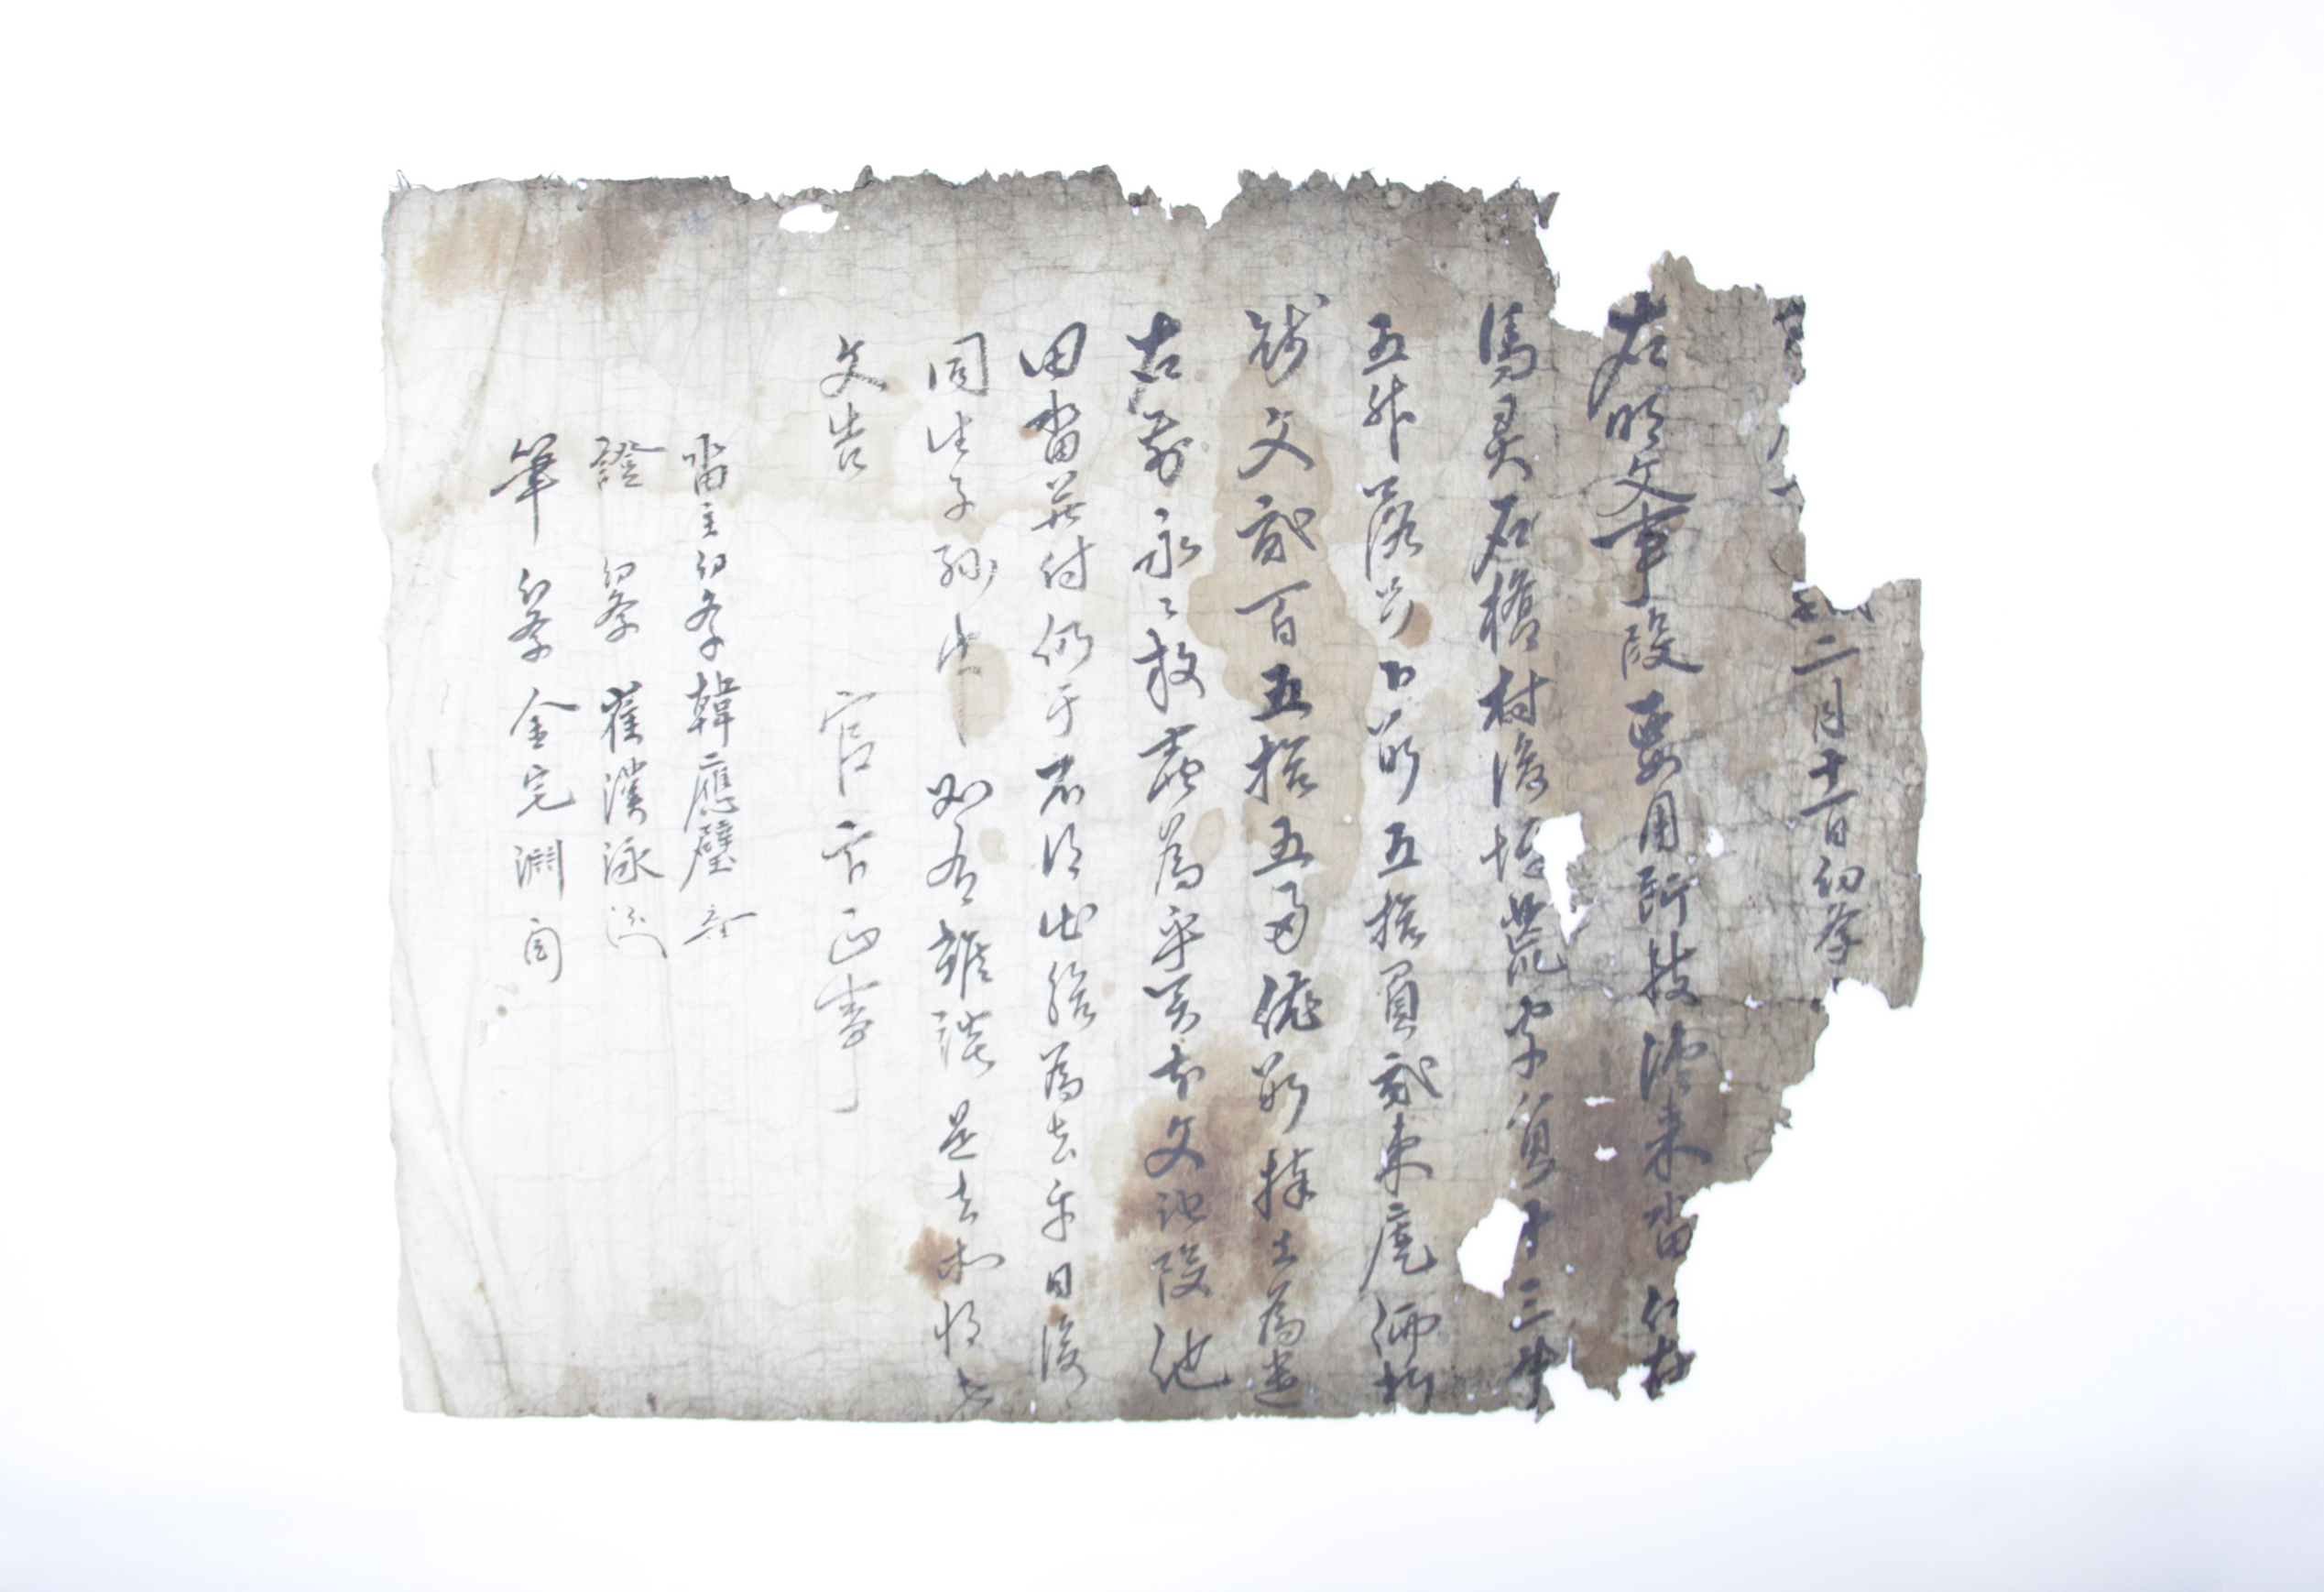 二月十一日幼學
右明文事段要用所致傳來畓伏在
馬灵面檜村後坪荒字畓十三斗
五升落只卜數五拾負貳束庫乙折
錢文貳百五拾五兩依數捧上爲遣
右前永永放賣爲乎矣本文記段他
田畓幷付仍于不得出給爲去乎日後
同生子孫中 如有雜談是去等將此
文告 官卞正事
畓主幼學韓應璧
證 幼學 崔漢泳
筆 幼學 金完淵